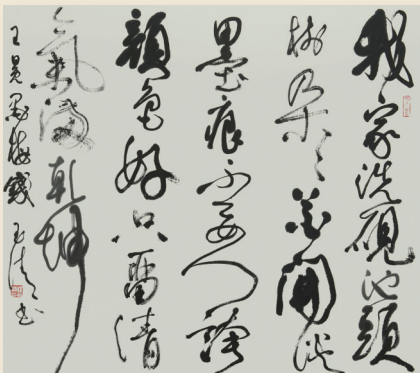 我家洗硯池頭
樹朵々花開淡
墨痕不要人誇
顏色好只留清
氣滿乾坤
王冕墨梅錢玉清书